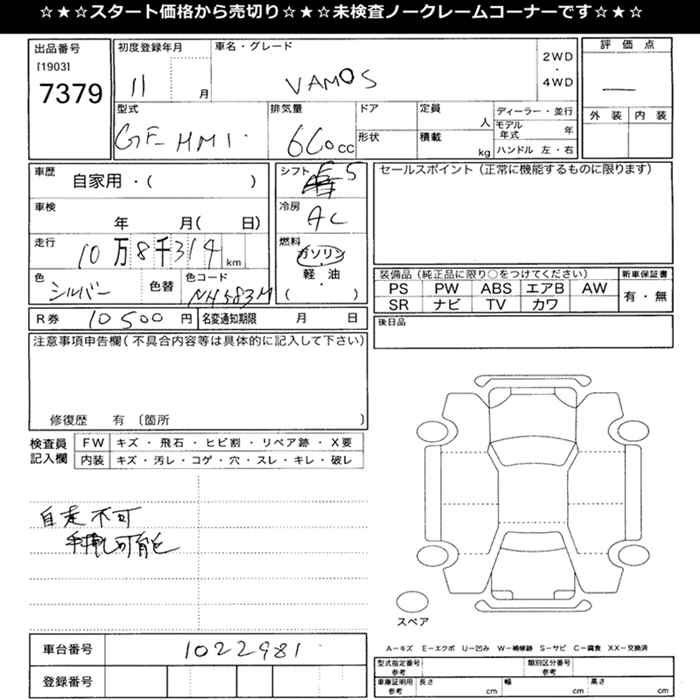 ☆★☆★スタート価格から売切り☆★☆★未検査ノークレームコーナーです☆★☆★
出品番号
[1903]
7379
初度登録年月
11 月
車名・グレード
VAMOS
2WD
・
4WD
評価点
—
外装 内装
型式
GF-HM1
排気量
660cc
ドア
形状
定員
人
積載
kg
ディーラー・並行
モデル年式 年
ハンドル 左・右
車歴
自家用・( )
車検
年 月( 日)
走行
10万8千314km
色
シルバー
色替
色コード
NH583M
シフト
F5
冷房
AC
燃料
ガソリン
・
軽・油
( )
セールスポイント(正常に機能するものに限ります)
装備品(純正品に限り○をつけてください)
PS PW ABS エアB AW
SR ナビ TV カワ
新車保証書
有・無
R券 10500円
名変通知期限 月 日
後日品
注意事項申告欄(不具合内容等は具体的に記入して下さい)
修復歴 有 〔箇所 〕
検査員記入欄
FW キズ・飛石・ヒビ割・リペア跡・X要
内装 キズ・汚レ・コゲ・穴・スレ・キレ・破レ
自走不可
手押し可能
スペア
A-キズ E-エクボ U-凹み W-補修跡 S-サビ C-腐食 XX-交換済
車台番号
1022981
登録番号
型式指定番号
参考
類別区分番号
参考
車庫証明用
参考
長さ cm
幅 cm
高さ cm